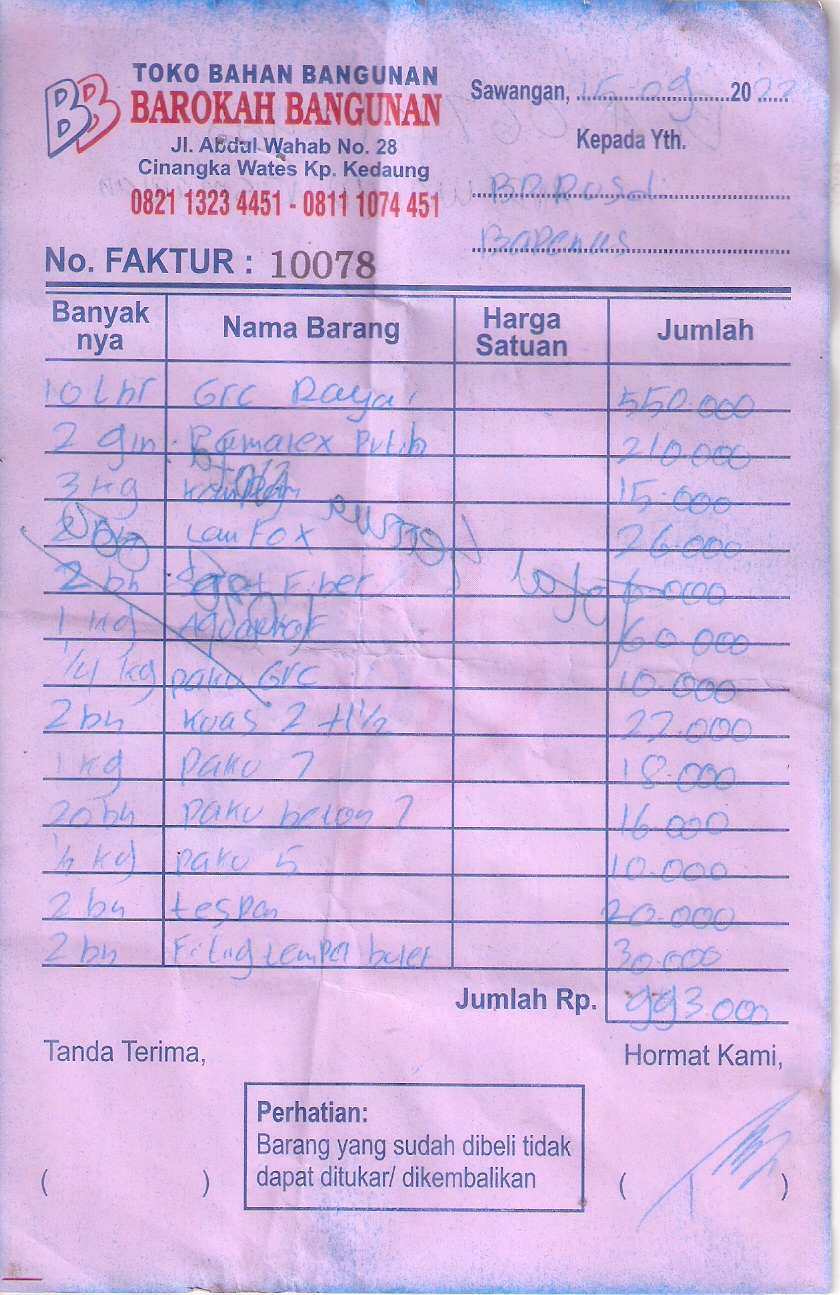 BB
TOKO BAHAN BANGUNAN
BAROKAH BANGUNAN
Jl. Abdul Wahab No. 28
Cinangka Wates Kp. Kedaung
0821 1323 4451 - 0811 1074 451
Sawangan, 15-09 2022
Kepada Yth.
BP Rusdi
No. FAKTUR : 10078
Banyak nya Nama Barang Harga Satuan Jumlah
10 lbr Grc Raya 550.000
2 gln Pamalex Putih 210.000
3 kg 15.000
Lem Fox 26.000
2 bh Fiber 6.000
1 kg Aquaprof 60.000
1/4 kg paku Grc 10.000
2 bh kuas 2 + 1 1/2 22.000
1 kg paku 7 18.000
20 bh paku beton 7 16.000
1/2 kg paku 5 10.000
2 bh tespan 20.000
2 bh 30.000
Jumlah Rp. 993.000
Tanda Terima, Hormat Kami,
Perhatian:
Barang yang sudah dibeli tidak
dapat ditukar/ dikembalikan
( ) ( )